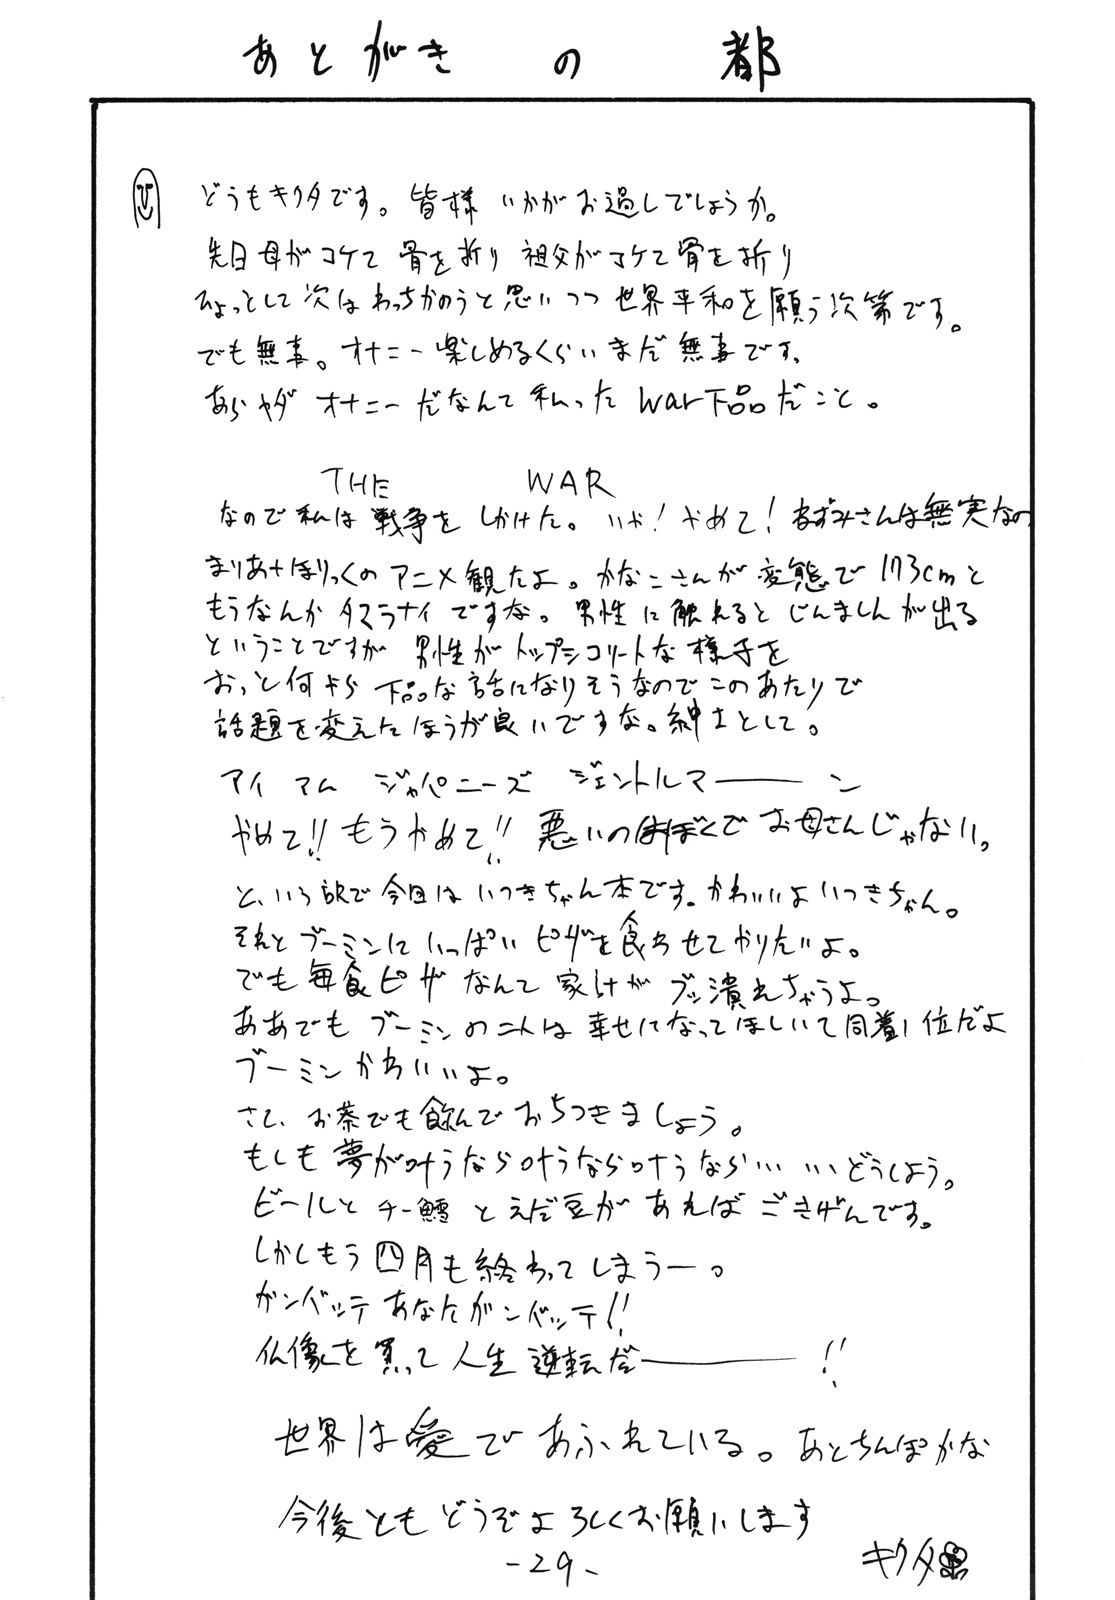 あとがきの都
どうもキクタです。皆様いかがお過しでしょうか。
先日母がコケて骨を折り祖父がコケて骨を折り
ひょっとして次はわっちかのうと思いつつ世界平和を願う次第です。
でも無事。オナニー楽しめるくらいまだ無事です。
あらヤダオナニーだなんて私ったwar下品だこと。
THE WAR
なので私は戦争をしかけた。いや!やめて!ねずみさんは無実なの
まりあ†ほりっくのアニメ観たよ。かなこさんが変態で173cmと
もうなんかタマラナイですな。男性に触れるとじんましんが出る
ということですが男性がトップシコリートな様子を
おっと何やら下品な話になりそうなのでこのあたりで
話題を変えたほうが良いですな。紳士として。
アイアムジャパニーズジェントルマーーン
やめて!!もうやめて!!悪いのはぼくでお母さんじゃない。
という訳で今回はいつきちゃん本です。かわいいよいつきちゃん。
それとブーミンにいっぱいピザを食わせてやりたいよ。
でも毎食ピザなんて家計がブッ潰れちゃうよ。
ああでもブーミンの二人は幸せになってほしいて同着1位だよ
ブーミンかわいいよ。
さて、お茶でも飲んでおちつきましょう。
もしも夢が叶うなら叶うなら叶うなら……どうしよう。
ビールとチー鱈とえだ豆があればごきげんです。
しかしもう四月も終わってしまうー。
ガンバッテあなたガンバッテ!!
仏像を買って人生逆転だーー!!
世界は愛であふれている。あとちんぽかな
今後ともどうぞよろしくお願いします
-29-
キクタ